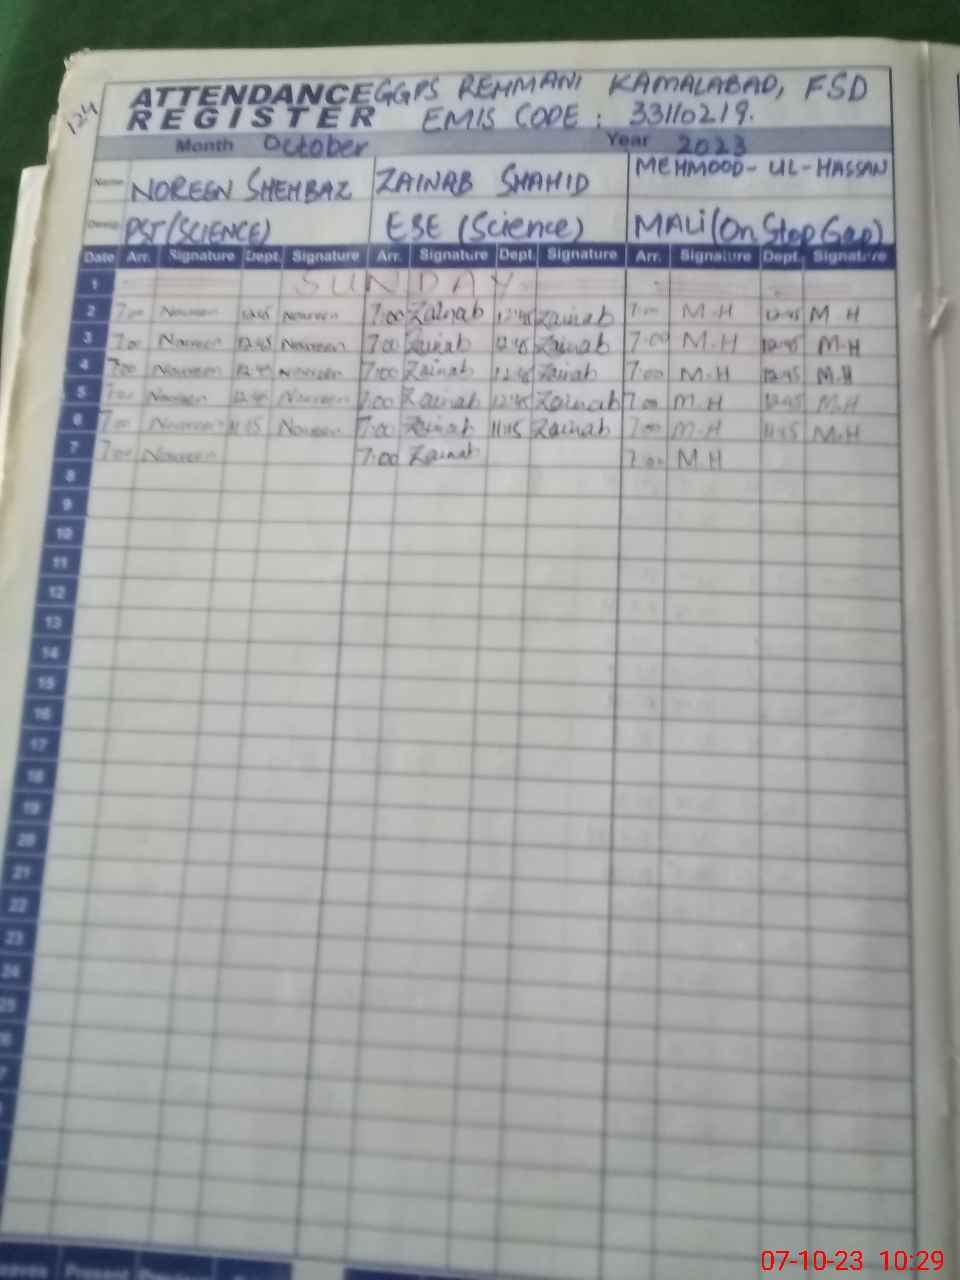 124
ATTENDANCE GGPS REHMANI KAMALABAD, FSD
REGISTER EMIS CODE : 33110219.
Month October Year 2023
Name NOREEN SHEHBAZ ZAINAB SHAHID MEHMOOD-UL-HASSAN
PST (SCIENCE) ESE (Science) MALI (On Stop Gap)
Date Arr. Signature Dept. Signature Arr. Signature Dept. Signature Arr. Signature Dept. Signature
1 SUNDAY
2 7:00 Noreen 12:45 Noreen 7:00 Zainab 12:45 Zainab 7:00 M.H 12:45 M.H
3 7:00 Noreen 12:45 Noreen 7:00 Zainab 12:45 Zainab 7:00 M.H 12:45 M.H
4 7:00 Noreen 12:45 Noreen 7:00 Zainab 12:45 Zainab 7:00 M.H 12:45 M.H
5 7:00 Noreen 12:45 Noreen 7:00 Zainab 12:45 Zainab 7:00 M.H 12:45 M.H
6 7:00 Noreen 11:15 Noreen 7:00 Zainab 11:15 Zainab 7:00 M.H 11:15 M.H
7 7:00 Noreen 7:00 Zainab 7:00 M.H
8
9
10
11
12
13
14
15
16
17
18
19
20
21
22
23
24
25
Present
07-10-23 10:29